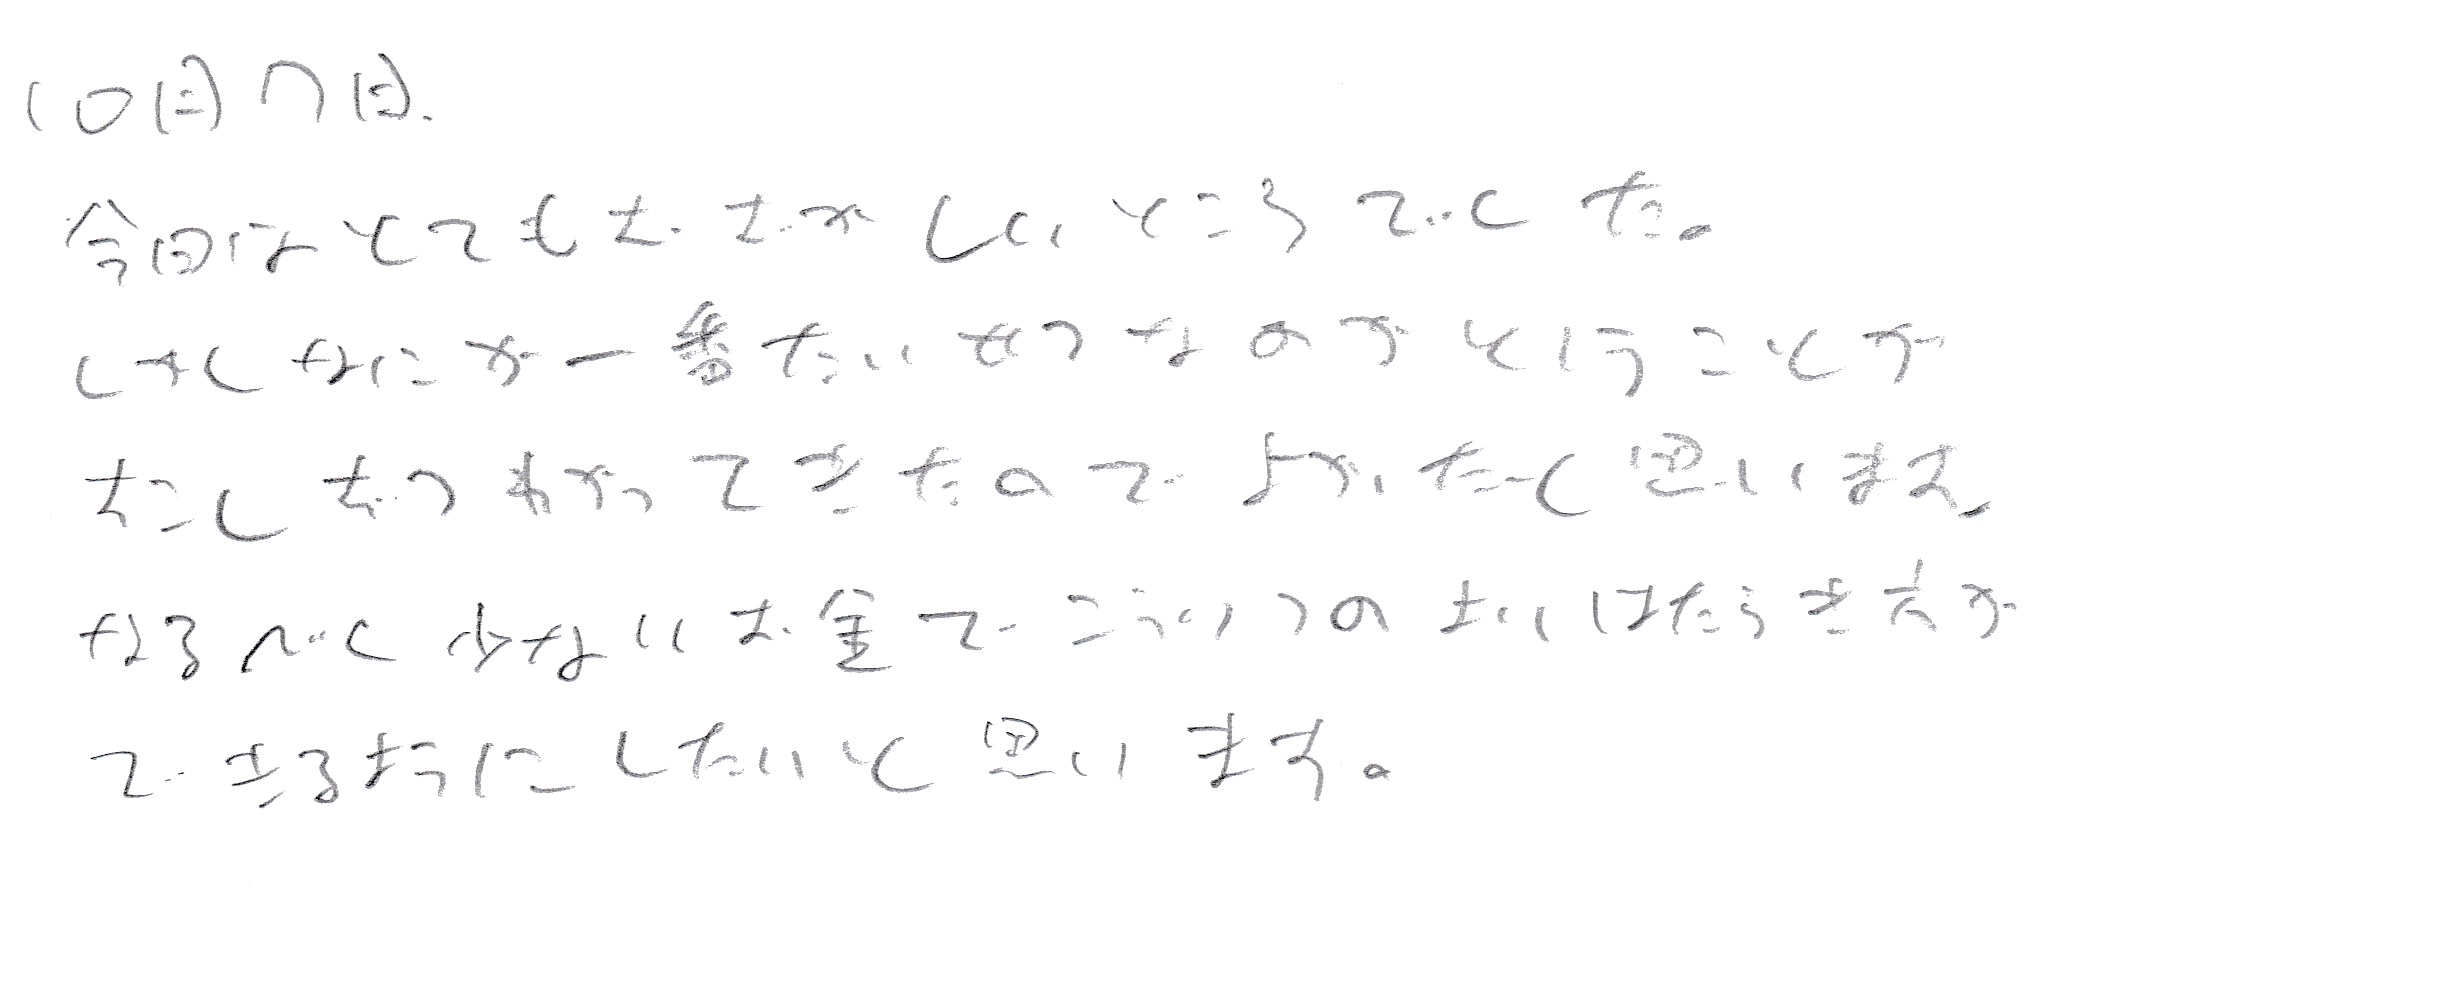 10日7日.
今回はとてもむずかしいところでした。
しかしなにが一番たいせつなのかということが
すこしずつわかってきたのでよかったと思います
なるべく少ないお金でこうりつのよいはたらき方が
できるようにしたいと思います。